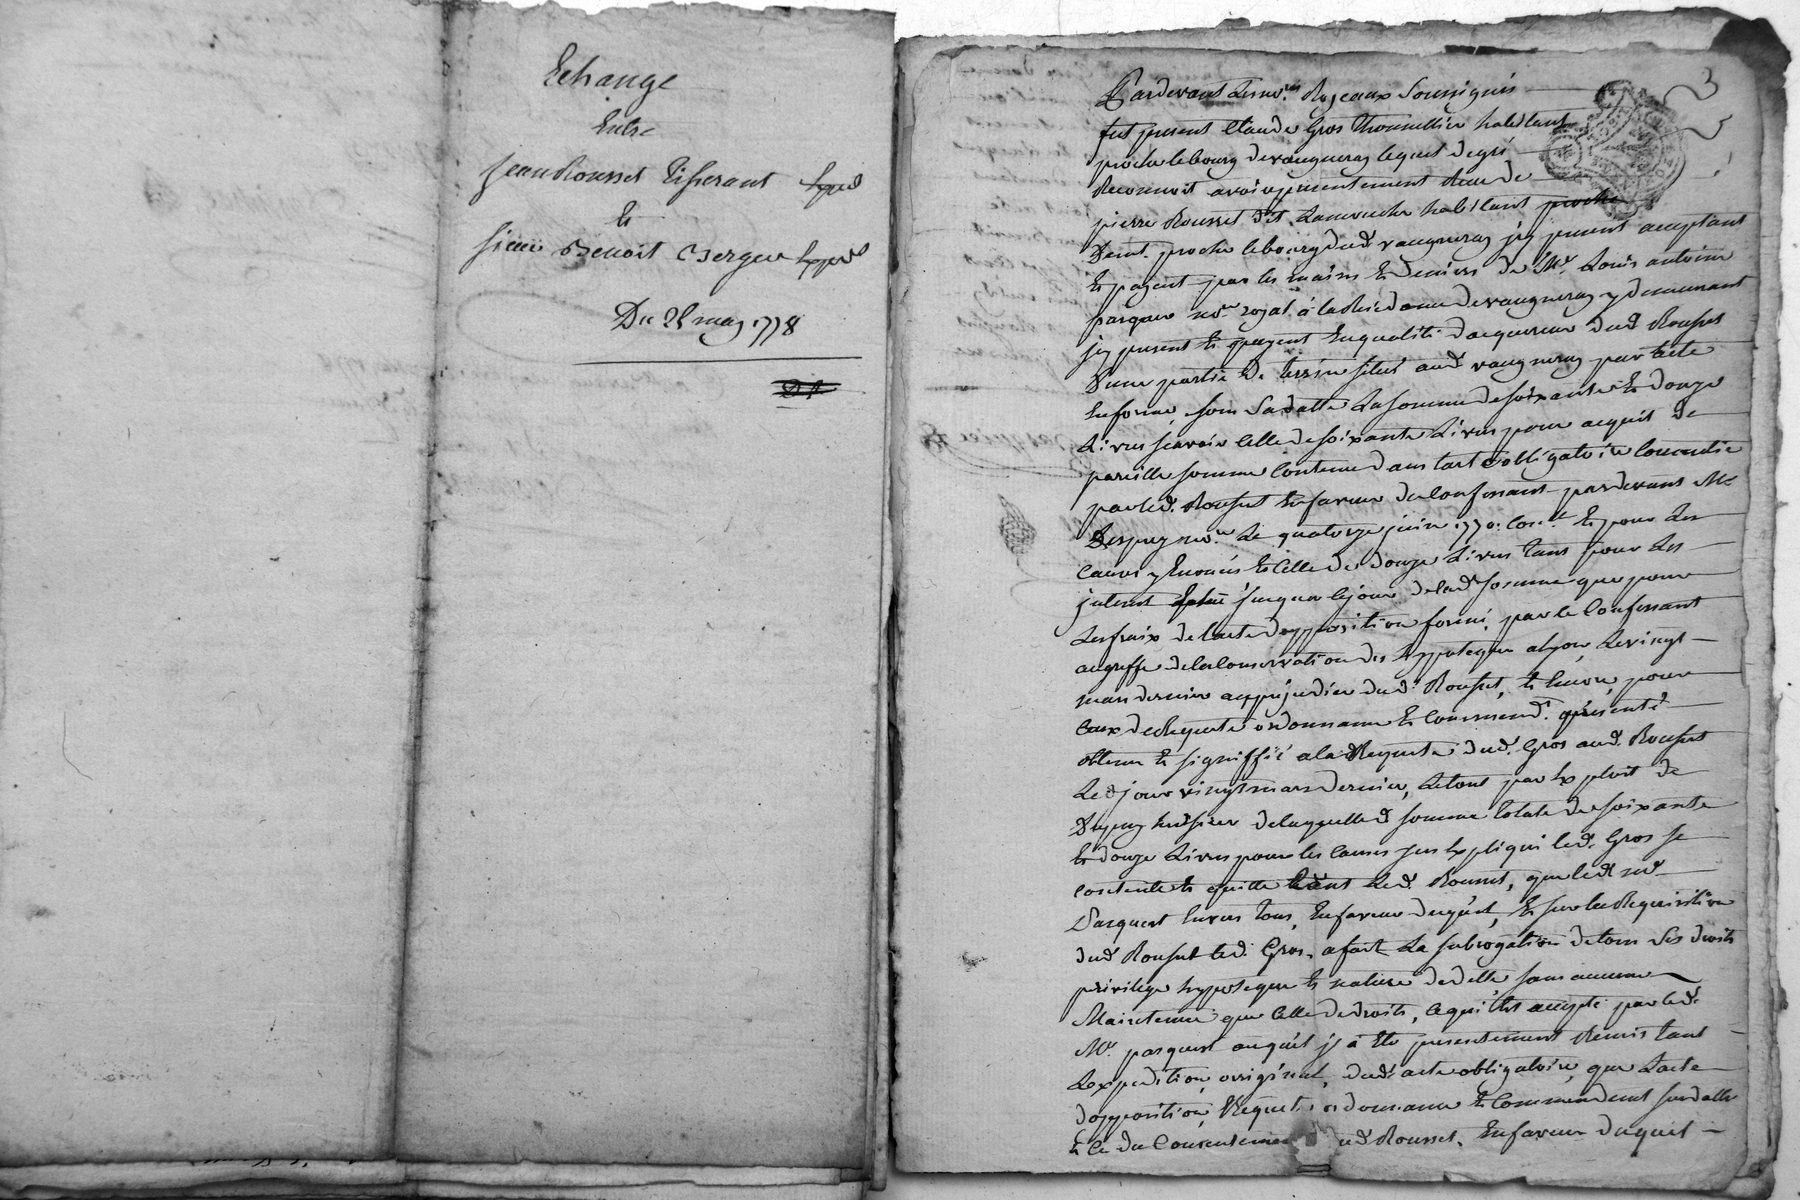 Echange
Entre
Jean Rousset Tisserant
Et
sieur Benoit Berger
Du 28 may 1778
Pardevant les no.res Royeaux soussignés
fut present Claude Gros Thonnellier habitant
proche le bourg de vaugneray lequel de gré
Reconnoit avoir presentement Receu de
pierre Rousset dit habitant proche
proche le bourg dud vaugneray icy present acceptant
Et payant par les mains Et deniers de Me. Louis antoine
pasquier no.re royal a la de vaugneray y demeurant
icy present Et payant En qualité d'acquereur dud Rousset
D'une partie De située aud vaugneray par acte
En forme sous sa datte La somme de soixante Et douze
Livres scavoir celle de soixante Livres pour acquit de
pareille somme contenue dans l'acte obligatoire consentie
par led. Rousset En faveur du confessant pardevant Me
Despuy no.re Le quatorze juin 1770. Et pour Les
causes y Enoncés Et celle de douze Livres tant pour Les
interest jusques a ce jour de lad somme que pour
Les fraix de l'acte d'opposition formé par le confessant
au greffe de la conservation des hyppoteques a Lyon Le vingt
mars dernier au prejudice dud. Rousset, Et Encore pour
ceux de Requete ordonnance Et commend.t presenté
obtenu Et signiffié a la Requete dud. Gros aud. Rousset
Led jour vingt mars dernier, Le tout par Exploit de
Dupuy huissier de laquelle d somme totale de soixante
Et douze Livres pour les causes sus Expliqué led. Gros se
contente Et quitte tant Led. Rousset, que led no.e
pasquier Envers tous, En faveur duquel, Et sur la Requisition
dud Rousset led. Gros, a fait La subrogation de tous ses droits
privilege hyppoteque Et nature de dette sans aucune
Maintenue que celle de droits, ce qui Est accepté par led.
Me. pasquier auquel il a Eté presentement Remis tant
L'expedition originale, dud. acte obligatoire, que L'acte
d'opposition, Requete ordonnance Et commendement susdatté
Et ce du consentement dud Rousset, En faveur duquel